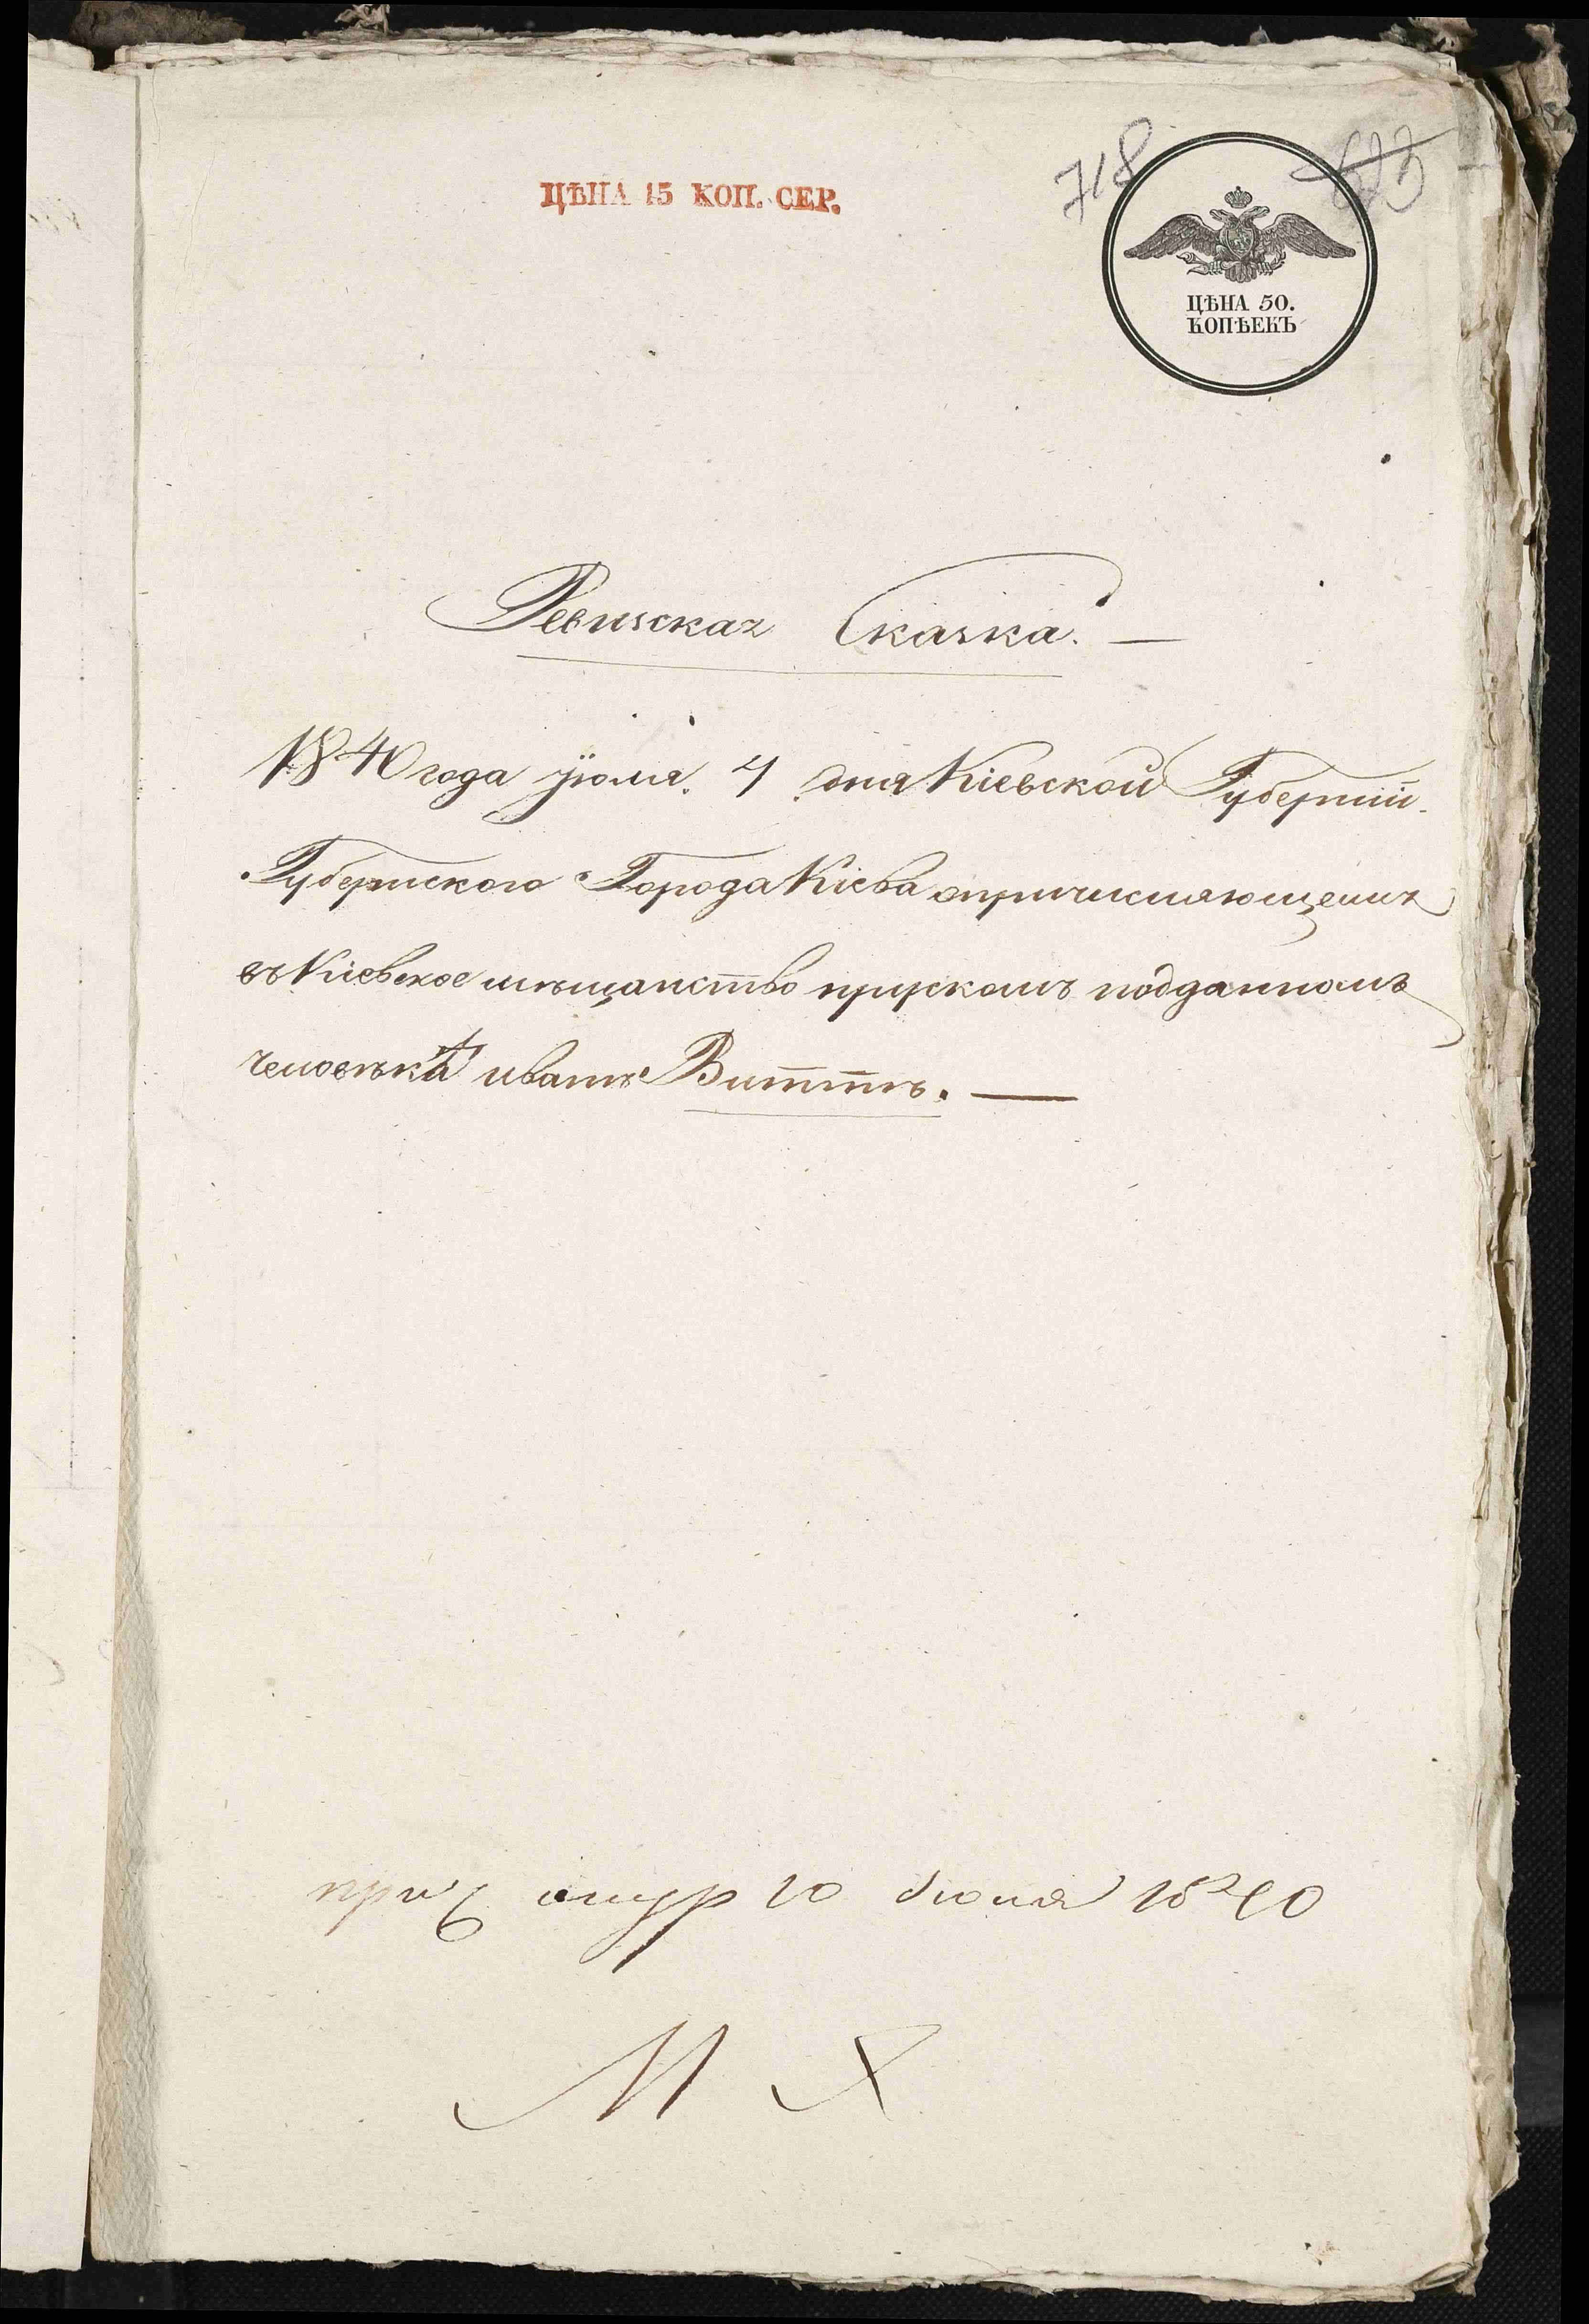 718
623
ЦѢНА 15 КОП. СЕР.
ЦѢНА 50.
КОПѢЕКЪ
Ревизская Сказка. —
1840 года июля. 4 дня Кіевской Губерніи.
Губернского Города Кіева о причисляющемся
въ Кіевское мѣщанство прускомъ подданномъ
человѣка иванѣ Виттѣ. —
10 Июля 1840